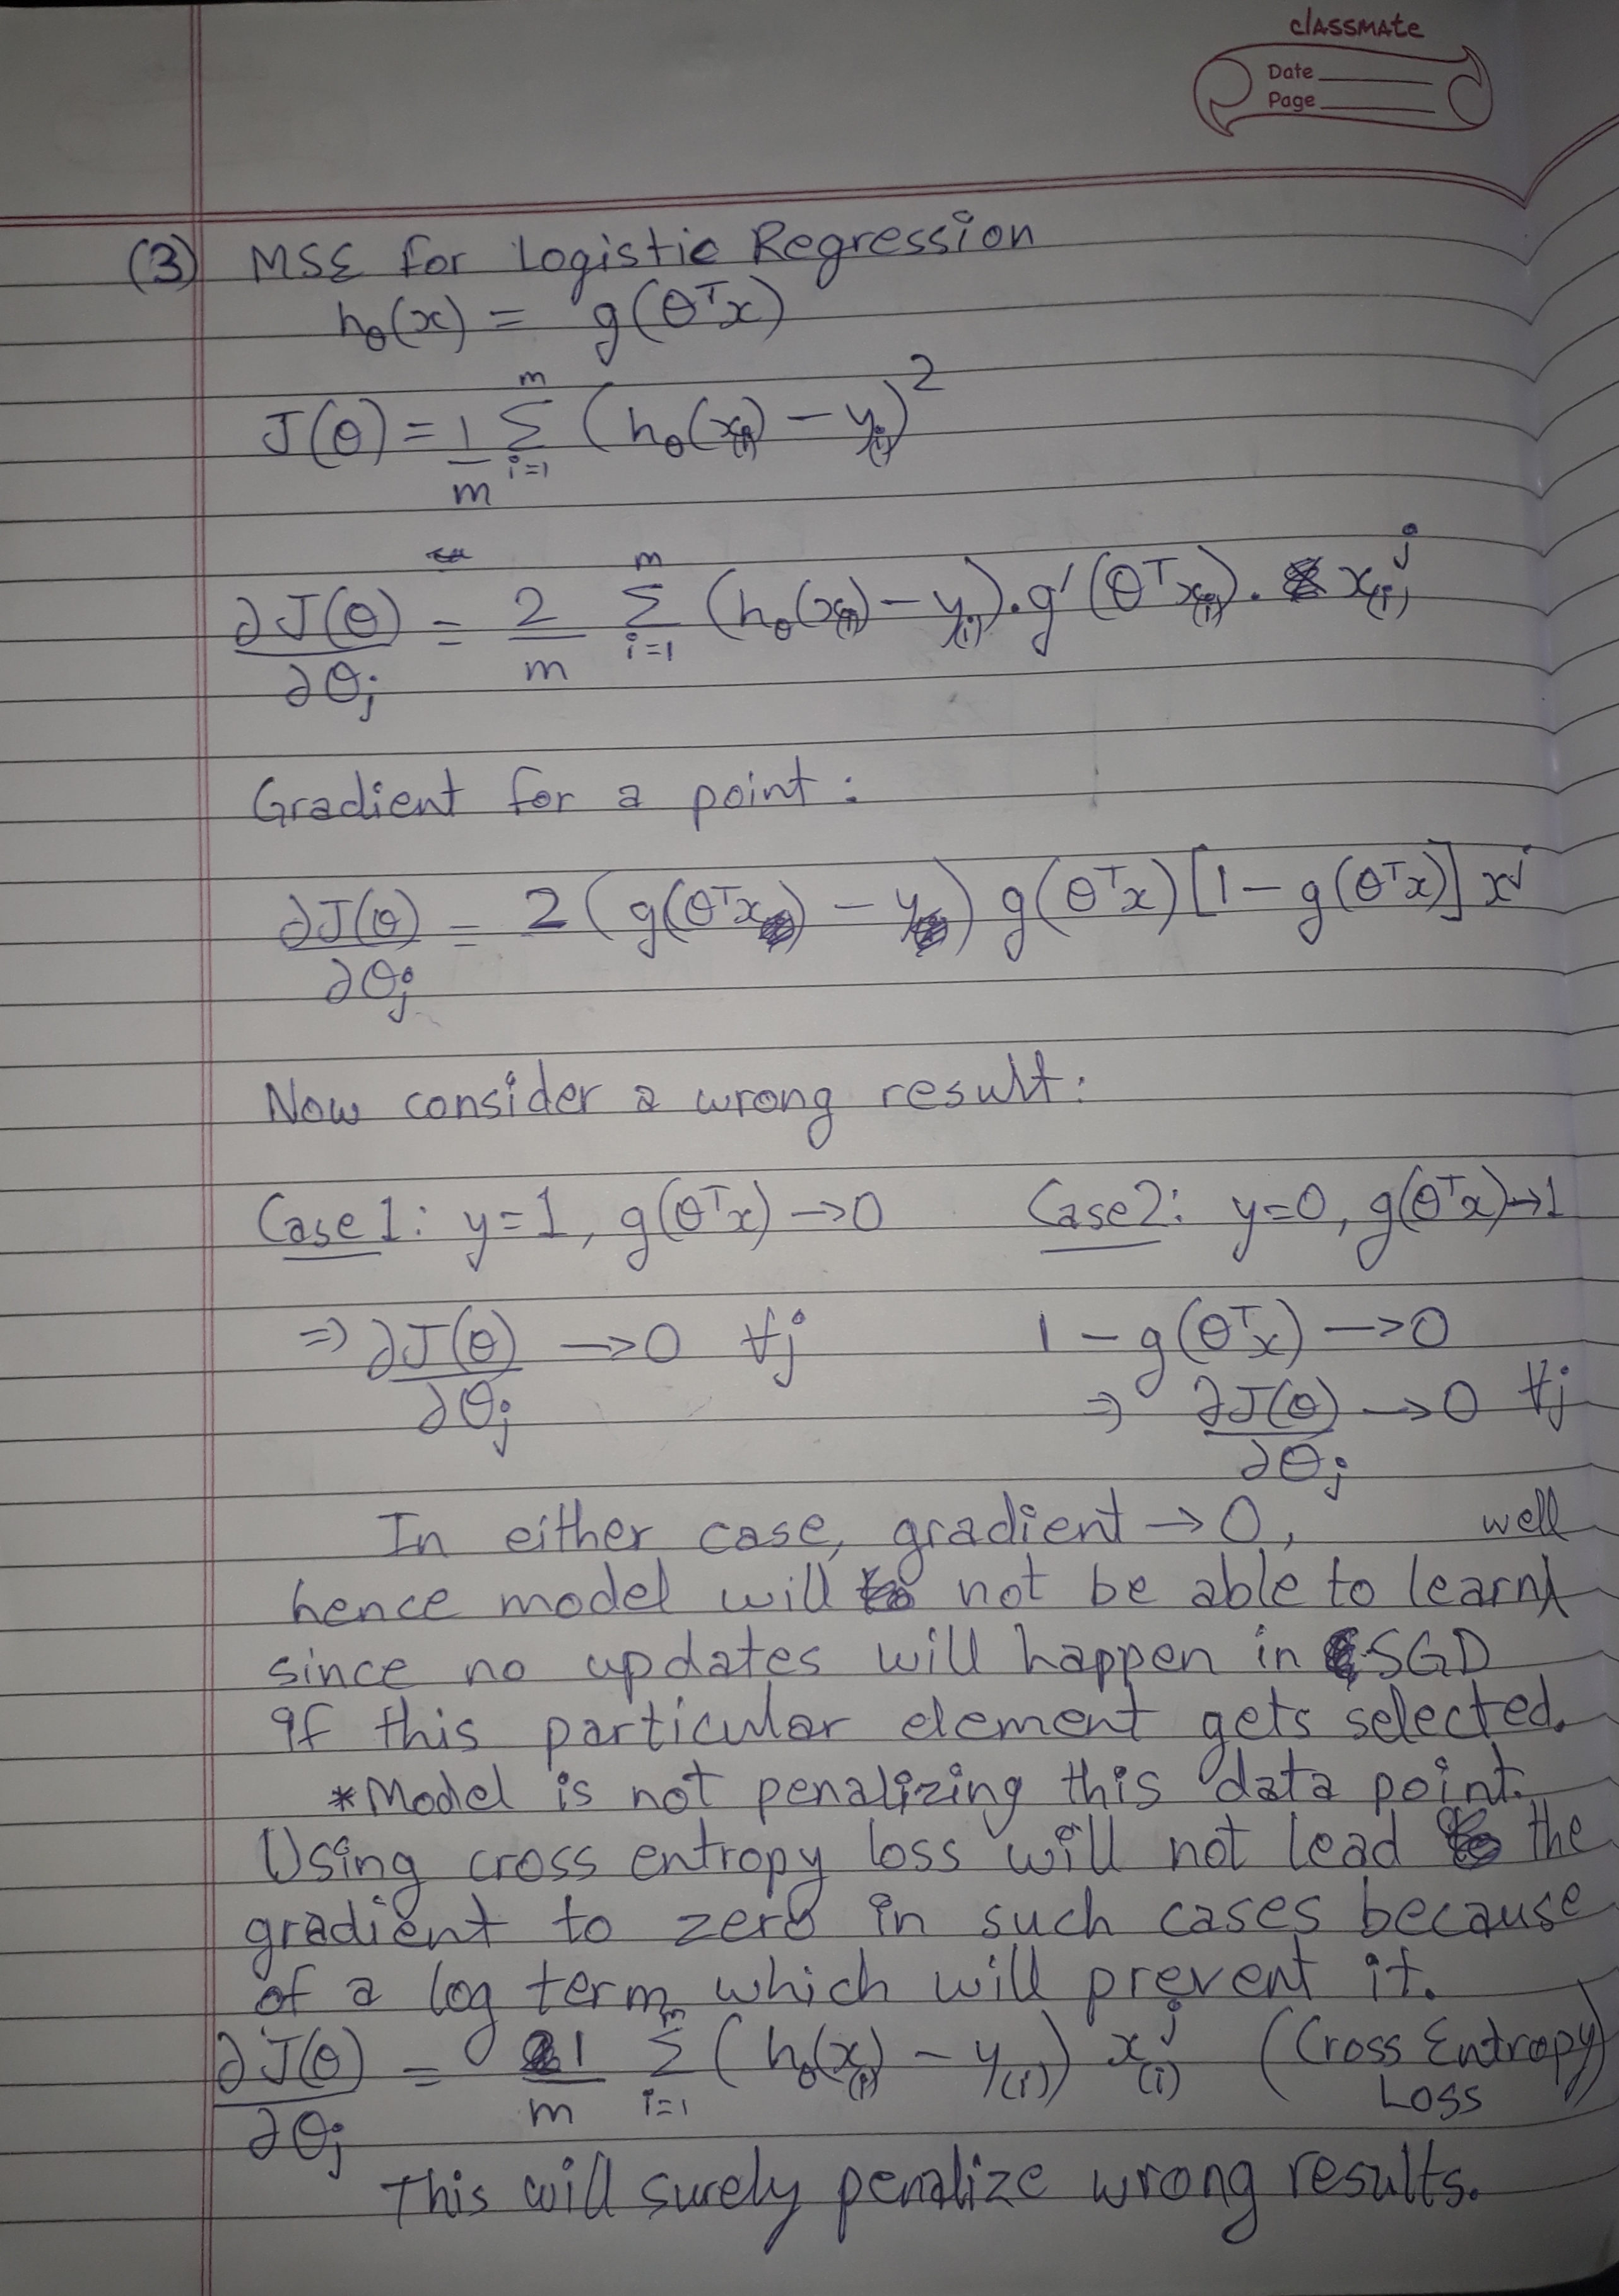 classmate
Date
Page
(3) MSE for Logistic Regression
hθ(x) = g(θᵀx)
J(θ) = 1/m Σ_{i=1}^{m} (hθ(x(i)) − y(i))²
∂J(θ)/∂θj = 2/m Σ_{i=1}^{m} (hθ(x(i)) − y(i)) . g′(θᵀx(i)) . x(i)^j
Gradient for a point :
∂J(θ)/∂θj = 2 (g(θᵀx) − y) g(θᵀx) [1 − g(θᵀx)] x^j
Now consider a wrong result:
Case 1: y=1, g(θᵀx) → 0 Case 2: y=0, g(θᵀx) → 1
⇒ ∂J(θ)/∂θj → 0 ∀j 1 − g(θᵀx) → 0
⇒ ∂J(θ)/∂θj → 0 ∀j
In either case, gradient → 0,
hence model will not be able to learn well
since no updates will happen in SGD
if this particular element gets selected.
*Model is not penalizing this data point.
Using cross entropy loss will not lead the
gradient to zero in such cases because
of a log term which will prevent it.
∂J(θ)/∂θj = 1/m Σ_{i=1}^{m} (hθ(x(i)) − y(i)) x(i)^j (Cross Entropy Loss)
This will surely penalize wrong results.